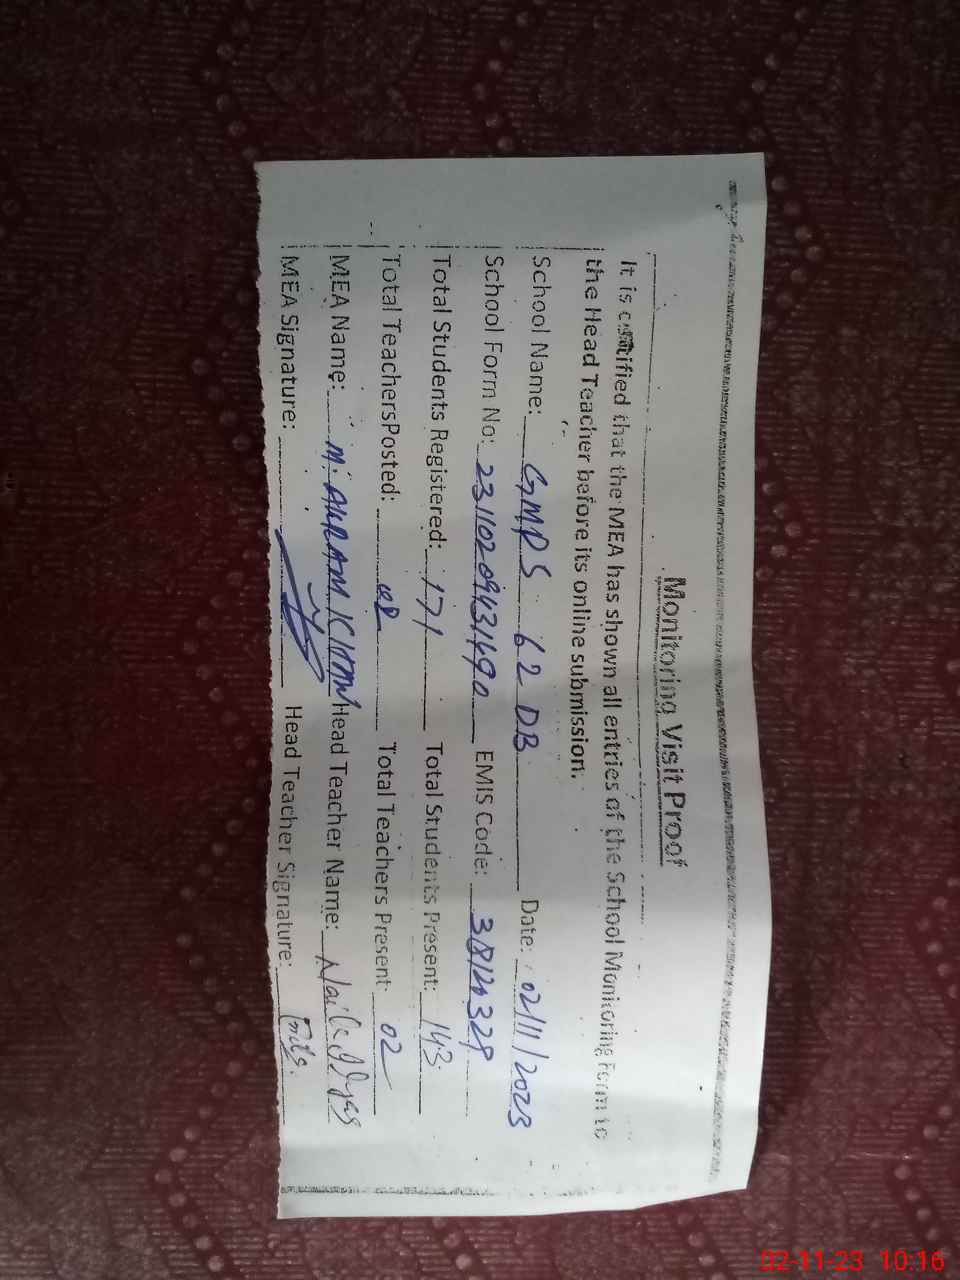 Monitoring Visit Proof
It is certified that the MEA has shown all entries of the School Monitoring Form to
the Head Teacher before its online submission.
School Name: GMPS 62 DB Date: 02/11/2023
School Form No: EMIS Code:
Total Students Registered: 171 Total Students Present: 143
Total TeachersPosted: Total Teachers Present: 02
MEA Name: M. AKRAM KHAN Head Teacher Name: Naila Ilyas
MEA Signature: Head Teacher Signature:
02-11-23 10:16